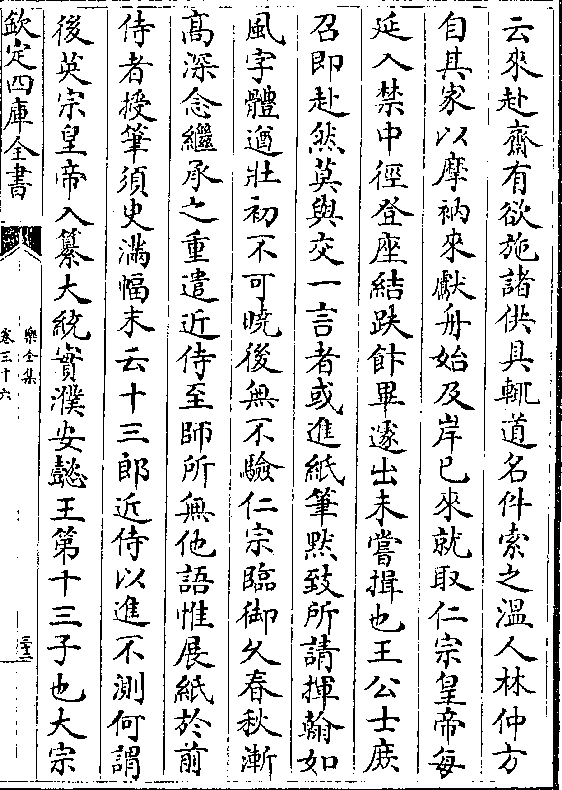 云來赴齋有欲施諸供具輒道名件索之溫人林仲方
自其家以摩衲來獻舟始及岸已來就取仁宗皇帝每
延入禁中徑登座結趺飰畢遽出未嘗揖也王公士庶
召即赴然莫與交一言者或進紙筆黙致所請揮翰如
風字體遒壯初不可曉後無不驗仁宗臨御久春秋漸
髙深念繼承之重遣近侍至師所無他語惟展紙於前
侍者授筆須臾滿幅末云十三郎近侍以進不測何謂
後英宗皇帝入纂大統實濮安懿王第十三子也大宗
欽定四庫全書
樂全集
卷三十六